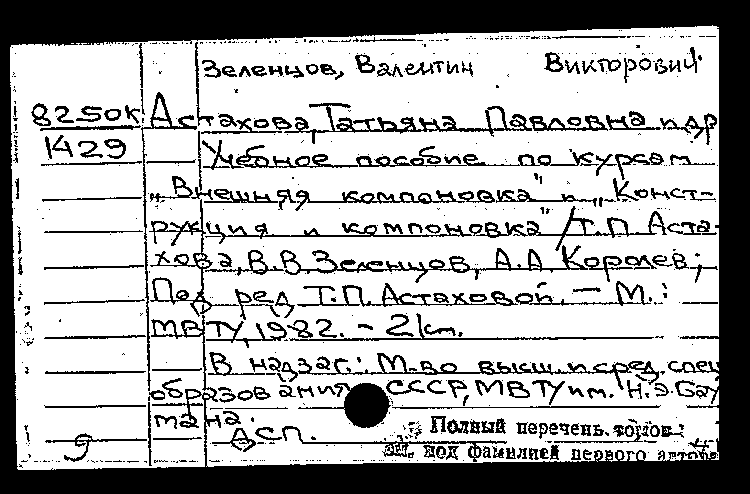 Зеленцов, Валентин Викторович
8250К Астахова, Татьяна Павловна и др
1429 Учебное пособие по курсам
„Внешняя компоновка" и „Конст-
рукция и компоновка" / Т.П. Аста-
хова, В.В. Зеленцов, А.А. Королев;
Под ред. Т.П. Астаховой. — М.:
МВТУ, 1982. - 2 кт.
В надзаг.: М-во высш. и сред. спец
образования СССР, МВТУ им. Н.Э. Бау
мана.
ДСП.
9
Полный перечень томов
под фамилией первого автора